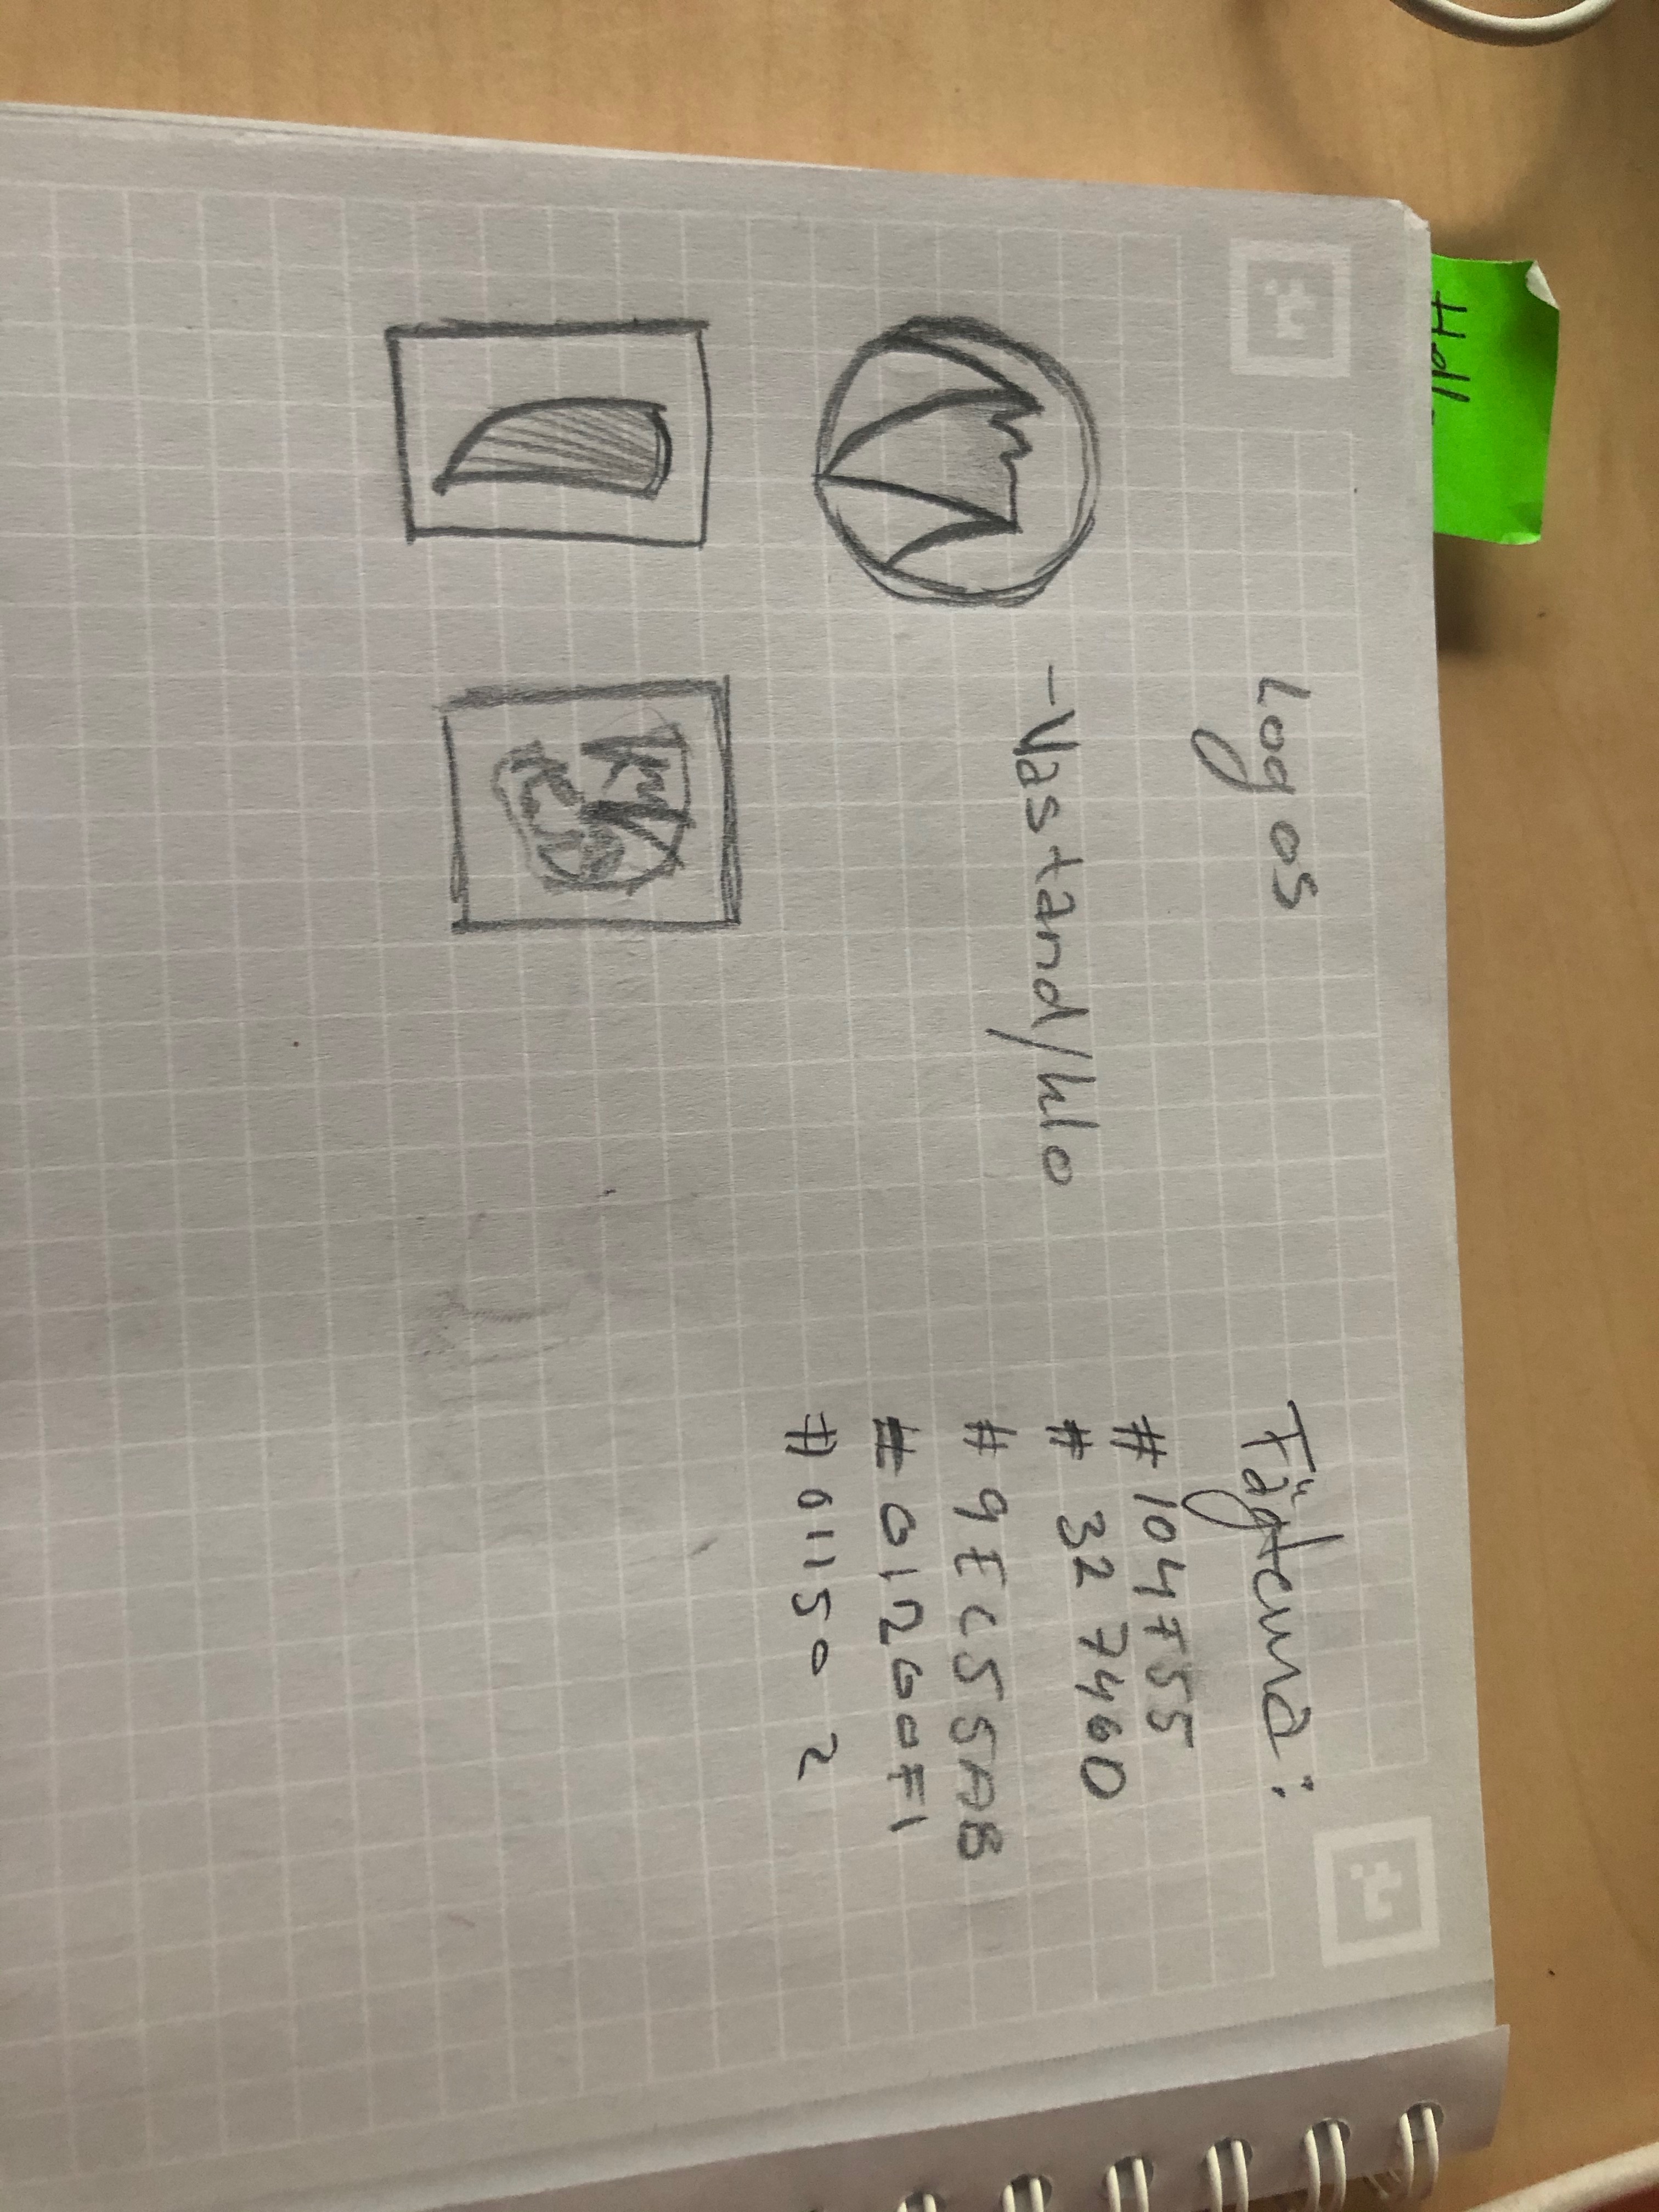 Logos
-Vastand/klo
Fägterna:
#104F55
#327460
#9EC55AB
#01200F1
#011502